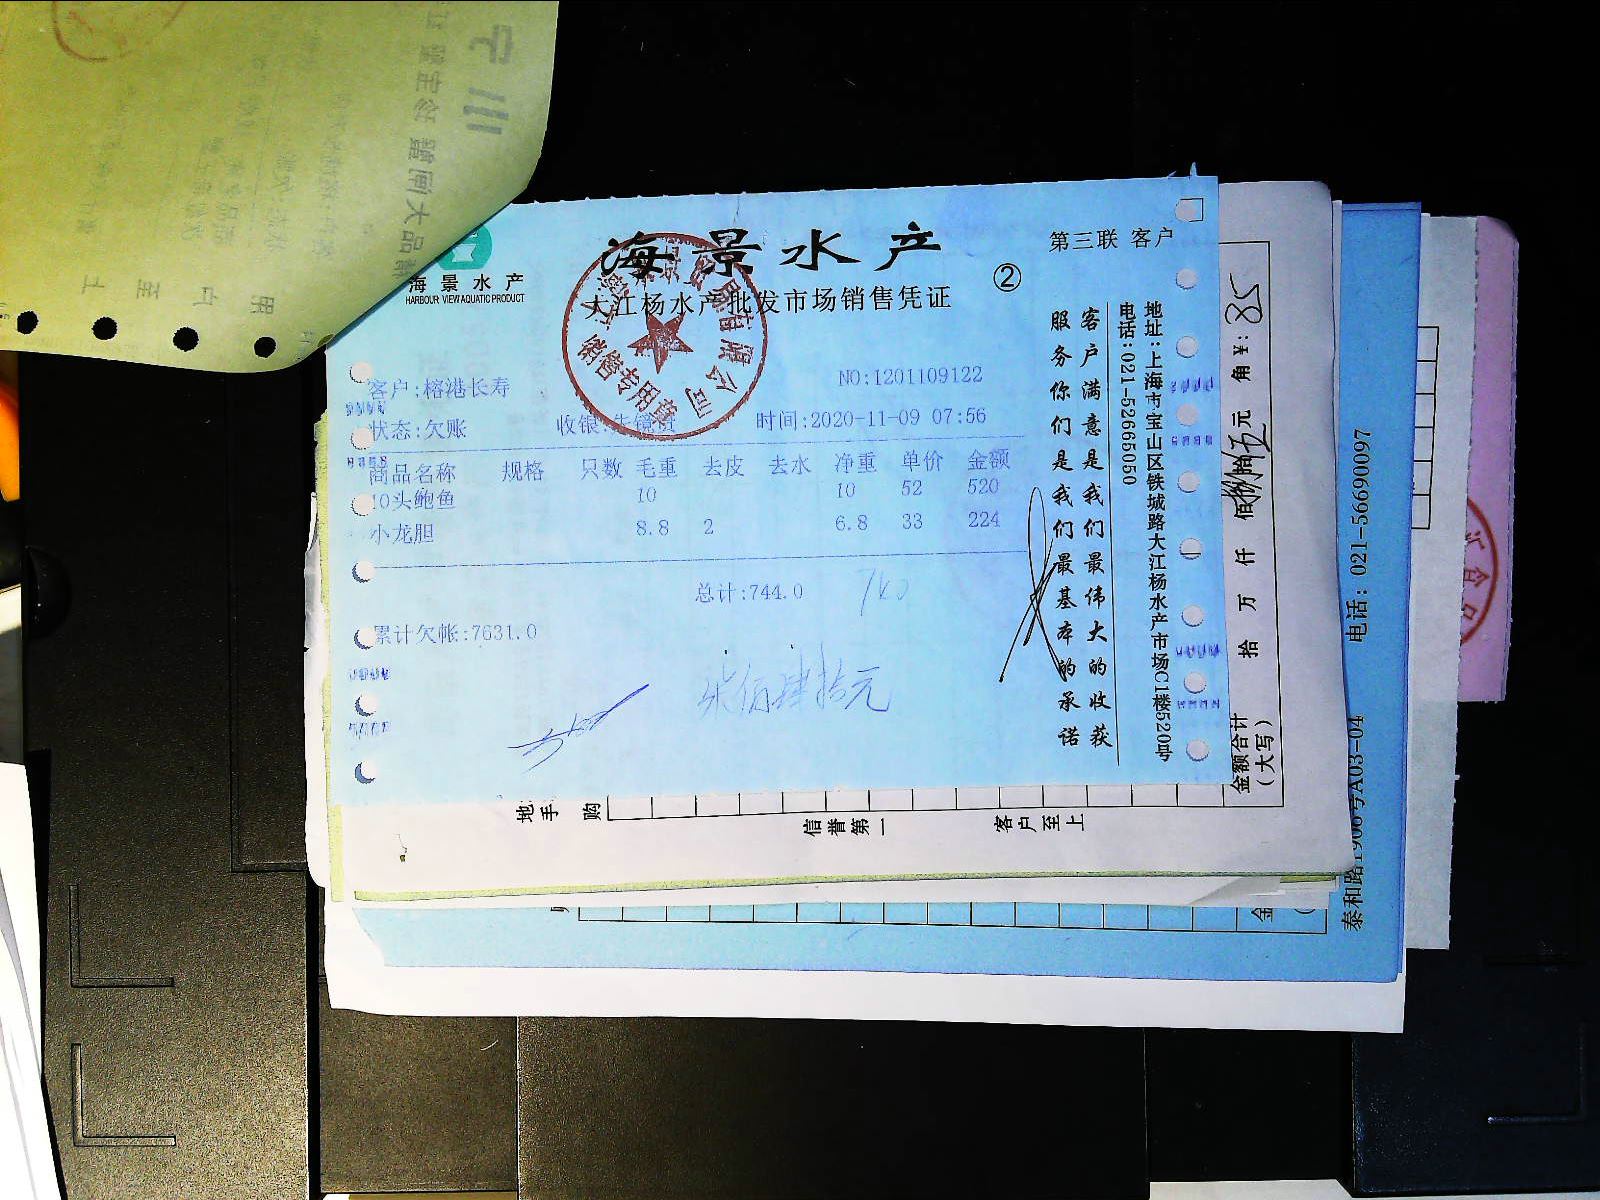 海景水产
HARBOUR VIEW AQUATIC PRODUCT
海景水产
大江杨水产批发市场销售凭证
②
第三联 客户
客户:榕港长寿
NO:1201109122
状态:欠账
收银:
时间:2020-11-09 07:56
商品名称 规格 只数 毛重 去皮 去水 净重 单价 金额
10头鲍鱼 10 10 52 520
小龙胆 8.8 2 6.8 33 224
总计:744.0
740
累计欠帐:7631.0
柒佰肆拾元
销售专用章
客户满意是我们最伟大的收获
服务你们是我们最基本的承诺
地址:上海市宝山区铁城路大江杨水产市场C1楼520号
电话:021-52665050
金额合计
(大写)
拾 万 仟 佰 捌拾伍元 角 ¥:85
信誉第一
客户至上
地
手
购
金
泰和路
A03-04
电话:021-56690097